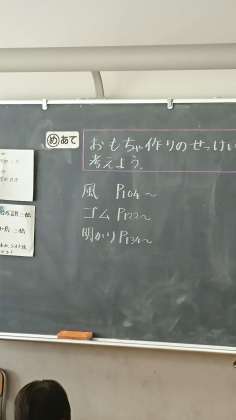 めあて
おもちゃ作りのせっけい
考えよう。
風 P104〜
ゴム P122〜
明かり P134〜